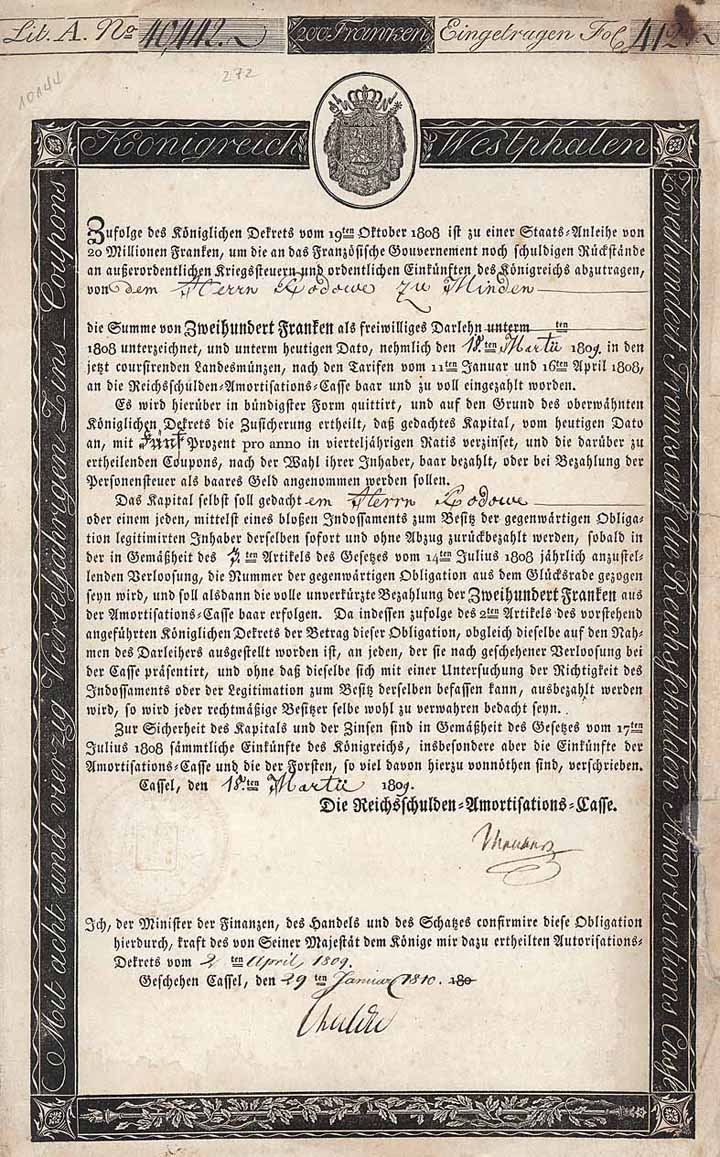 Lit. A. No 40,442. 200 Franken Eingetragen Fol. 412.
10144 272
Königreich Westphalen
Mit acht und vierzig Vierteljährigen Zins-Coupons
Zweihundert Franks auf die Reichsschulden Amortisations Casse
Zufolge des Königlichen Dekrets vom 19ten Oktober 1808 ist zu einer Staats-Anleihe von
20 Millionen Franken, um die an das Französische Gouvernement noch schuldigen Rückstände
an außerordentlichen Kriegssteuern und ordentlichen Einkünften des Königreichs abzutragen,
von dem Herrn Rodowe zu Minden
die Summe von Zweihundert Franken als freiwilliges Darlehn unterm ten
1808 unterzeichnet, und unterm heutigen Dato, nehmlich den 18.ten Martii 1809. in den
jetzt coursirenden Landesmünzen, nach den Tarifen vom 11ten Januar und 16ten April 1808,
an die Reichsschulden-Amortisations-Casse baar und zu voll eingezahlt worden.
Es wird hierüber in bündigster Form quittirt, und auf den Grund des oberwähnten
Königlichen Dekrets die Zusicherung ertheilt, daß gedachtes Kapital, vom heutigen Dato
an, mit Fünf Prozent pro anno in vierteljährigen Ratis verzinset, und die darüber zu
ertheilenden Coupons, nach der Wahl ihrer Inhaber, baar bezahlt, oder bei Bezahlung der
Personensteuer als baares Geld angenommen werden sollen.
Das Kapital selbst soll gedacht em Herrn Rodowe
oder einem jeden, mittelst eines bloßen Indossaments zum Besitz der gegenwärtigen Obliga-
tion legitimirten Inhaber derselben sofort und ohne Abzug zurückbezahlt werden, sobald in
der in Gemäßheit des 7.ten Artikels des Gesetzes vom 14ten Julius 1808 jährlich anzustel-
lenden Verloosung, die Nummer der gegenwärtigen Obligation aus dem Glücksrade gezogen
seyn wird, und soll alsdann die volle unverkürzte Bezahlung der Zweihundert Franken aus
der Amortisations-Casse baar erfolgen. Da indessen zufolge des 2ten Artikels des vorstehend
angeführten Königlichen Dekrets der Betrag dieser Obligation, obgleich dieselbe auf den Nah-
men des Darleihers ausgestellt worden ist, an jeden, der sie nach geschehener Verloosung bei
der Casse präsentirt, und ohne daß dieselbe sich mit einer Untersuchung der Richtigkeit des
Indossaments oder der Legitimation zum Besitz derselben befassen kann, ausbezahlt werden
wird, so wird jeder rechtmäßige Besitzer selbe wohl zu verwahren bedacht seyn.
Zur Sicherheit des Kapitals und der Zinsen sind in Gemäßheit des Gesetzes vom 17ten
Julius 1808 sämmtliche Einkünfte des Königreichs, insbesondere aber die Einkünfte der
Amortisations-Casse und die der Forsten, so viel davon hierzu vonnöthen sind, verschrieben.
Cassel, den 18.ten Martii 1809.
Die Reichsschulden-Amortisations-Casse.
Ich, der Minister der Finanzen, des Handels und des Schatzes confirmire diese Obligation
hierdurch, kraft des von Seiner Majestät dem Könige mir dazu ertheilten Autorisations-
Dekrets vom 2 ten April 1809.
Geschehen Cassel, den 29 ten Januar 1810. 180